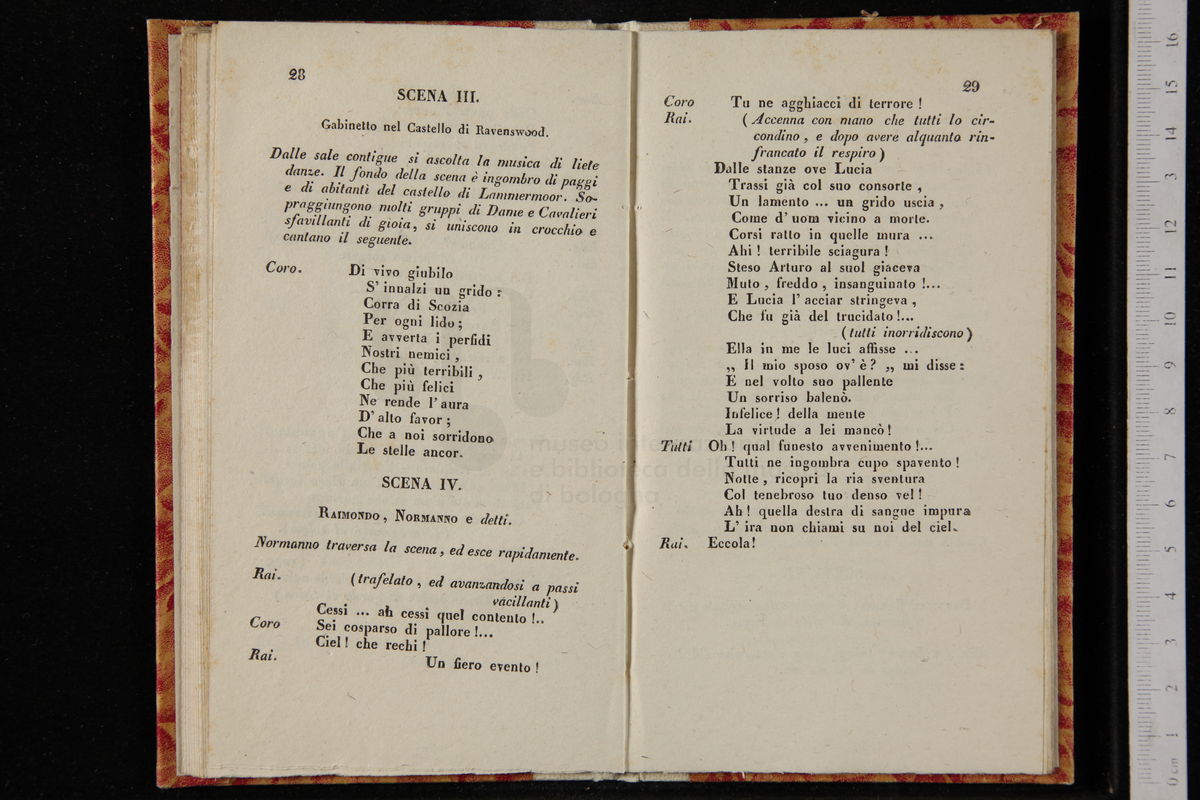 28
SCENA III.
Gabinetto nel Castello di Ravenswood.
Dalle sale contigue si ascolta la musica di liete
danze. Il fondo della scena è ingombro di paggi
e di abitanti del castello di Lammermoor. So-
praggiungono molti gruppi di Dame e Cavalieri
sfavillanti di gioia, si uniscono in crocchio e
cantano il seguente.
Coro. Di vivo giubilo
S' innalzi un grido :
Corra di Scozia
Per ogni lido ;
E avverta i perfidi
Nostri nemici ,
Che più terribili ,
Che più felici
Ne rende l' aura
D' alto favor ;
Che a noi sorridono
Le stelle ancor.
SCENA IV.
RAIMONDO , NORMANNO e detti.
Normanno traversa la scena , ed esce rapidamente.
Rai. (trafelato , ed avanzandosi a passi
vacillanti)
Cessi ... ah cessi quel contento !..
Coro Sei cosparso di pallore !...
Ciel ! che rechi !
Rai. Un fiero evento !
29
Coro Tu ne agghiacci di terrore !
Rai. ( Accenna con mano che tutti lo cir-
condino , e dopo avere alquanto rin-
francato il respiro )
Dalle stanze ove Lucia
Trassi già col suo consorte ,
Un lamento ... un grido uscia ,
Come d' uom vicino a morte.
Corsi ratto in quelle mura ...
Ahi ! terribile sciagura !
Steso Arturo al suol giaceva
Muto , freddo , insanguinato !...
E Lucia l' acciar stringeva ,
Che fu già del trucidato !...
( tutti inorridiscono )
Ella in me le luci affisse ...
„ Il mio sposo ov' è ? „ mi disse :
E nel volto suo pallente
Un sorriso balenò.
Infelice ! della mente
La virtude a lei mancò !
Tutti Oh ! qual funesto avvenimento !...
Tutti ne ingombra cupo spavento !
Notte , ricopri la ria sventura
Col tenebroso tuo denso vel !
Ah ! quella destra di sangue impura
L' ira non chiami su noi del ciel.
Rai. Eccola!
museo inter
e biblioteca della
di bologna
0 cm 1 2 3 4 5 6 7 8 9 10 11 12 13 14 15 16